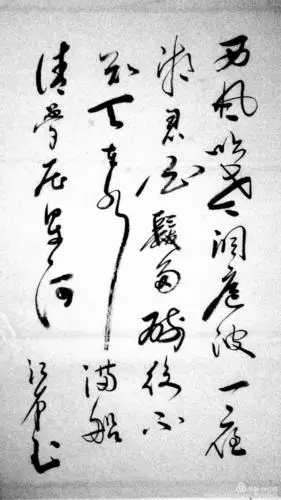 西風吹老洞庭波一夜
湘君白髮多醉後不
知天在水滿船
清夢压星河